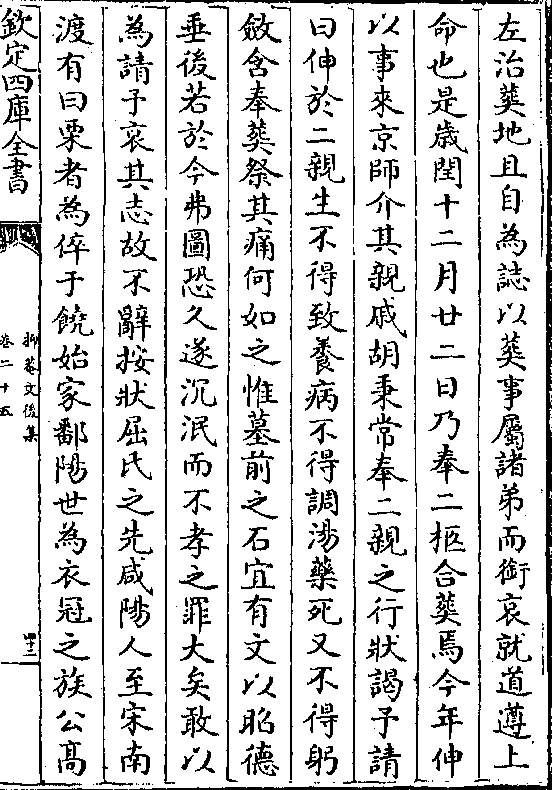 左治葬地且自為誌以葬事屬諸弟而銜哀就道遵上
命也是歲閏十二月廿二日乃奉二柩合葬焉今年伸
以事來京師介其親戚胡秉常奉二親之行狀謁予請
曰伸於二親生不得致養病不得調湯藥死又不得躬
斂含奉葬祭其痛何如之惟墓前之石宜有文以昭德
垂後若於今弗圖恐久遂沉泯而不孝之罪大矣敢以
為請予哀其志故不辭按狀屈氏之先咸陽人至宋南
渡有曰栗者為倅于饒始家鄱陽世為衣冠之族公高
欽定四庫全書
抑菴文後集
卷二十五
四十三